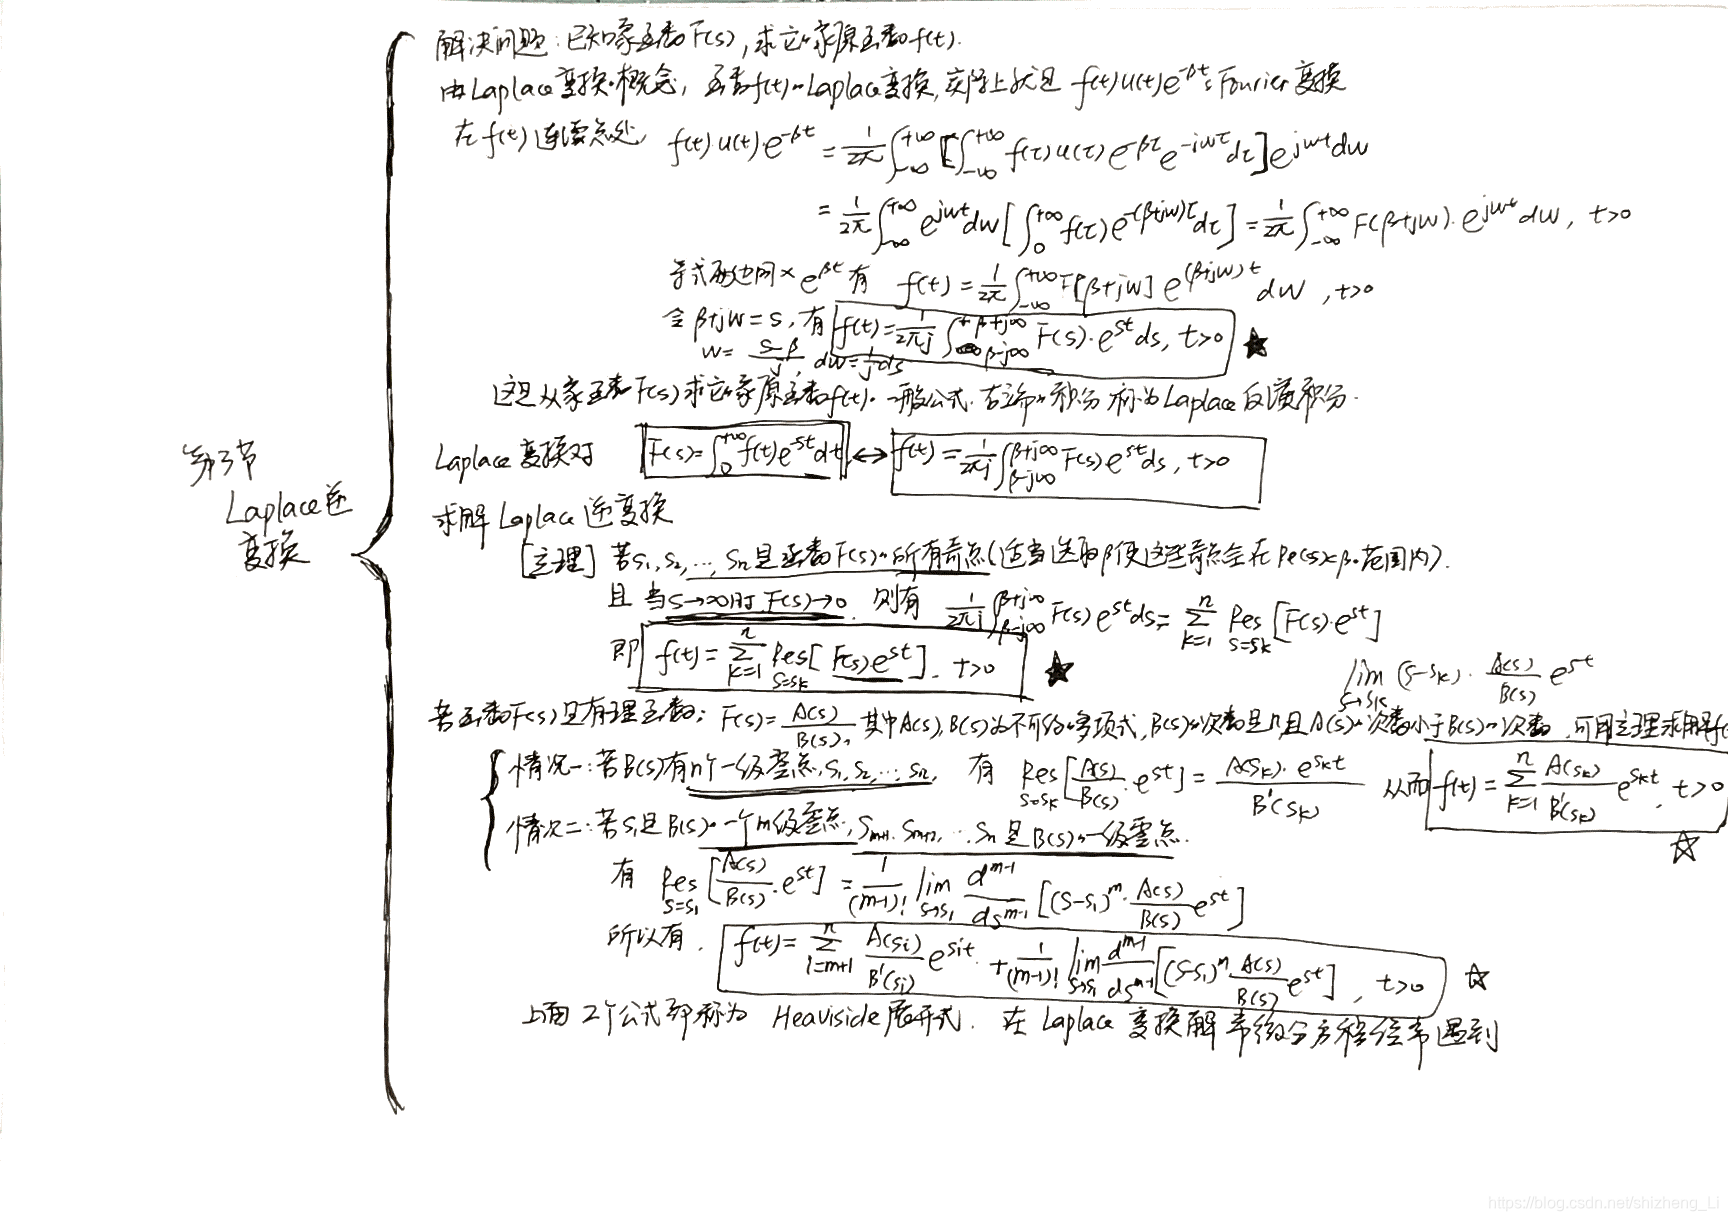 解决问题：已知象函数F(s)，求它的象原函数f(t).
由Laplace变换的概念，函数f(t)的Laplace变换，实际上就是 f(t)u(t)e^{-βt}的Fourier变换
在f(t)连续点处 f(t)·u(t)·e^{-βt} = \frac{1}{2π}∫_{-∞}^{+∞}[∫_{-∞}^{+∞} f(τ)u(τ)e^{-βτ}e^{-jwτ}dτ]e^{jwt}dw
= \frac{1}{2π}∫_{-∞}^{+∞} e^{jwt}dw[∫_{0}^{+∞} f(τ)e^{-(β+jw)τ}dτ] = \frac{1}{2π}∫_{-∞}^{+∞} F(β+jw)·e^{jwt}dw, t>0
等式两边同×e^{βt}有 f(t) = \frac{1}{2π}∫_{-∞}^{+∞} F[β+jw] e^{(β+jw)t} dw, t>0
令β+jw=s，有 f(t) = \frac{1}{2πj}∫_{β-j∞}^{β+j∞} F(s)·e^{st}ds, t>0 ★
w = \frac{s-β}{j}, dw = \frac{1}{j}ds
这是从象函数F(s)求它的象原函数f(t)的一般公式. 右端的积分称为Laplace反演积分.
第三节
Laplace逆
变换
Laplace变换对 F(s) = ∫_{0}^{+∞} f(t)e^{-st}dt ↔ f(t) = \frac{1}{2πj}∫_{β-j∞}^{β+j∞} F(s)e^{st}ds, t>0
求解Laplace逆变换
[定理] 若s₁, s₂, …, sₙ是函数F(s)的所有奇点(适当选取β使这些奇点全在Re(s)<β的范围内).
且当s→∞时F(s)→0. 则有 \frac{1}{2πj}∫_{β-j∞}^{β+j∞} F(s)e^{st}ds = \sum_{k=1}^{n} Res_{s=s_k}[F(s)·e^{st}]
即 f(t) = \sum_{k=1}^{n} Res_{s=s_k}[F(s)e^{st}]. t>0 ★
lim_{s→s_k} (s-s_k)·\frac{A(s)}{B(s)} e^{st}
若函数F(s)是有理函数：F(s) = \frac{A(s)}{B(s)}, 其中A(s), B(s)为不可约的多项式, B(s)的次数是n, 且A(s)的次数小于B(s)的次数, 可用定理求解f(
情况一：若B(s)有n个一级零点, s₁, s₂, …, sₙ, 有 Res_{s=s_k}[\frac{A(s)}{B(s)}·e^{st}] = \frac{A(s_k)·e^{s_k t}}{B'(s_k)} 从而 f(t) = \sum_{k=1}^{n} \frac{A(s_k)}{B'(s_k)} e^{s_k t}, t>0 ☆
情况二：若s₁是B(s)的一个m级零点, s_{m+1}, s_{m+2}, …, sₙ是B(s)的一级零点.
有 Res_{s=s₁}[\frac{A(s)}{B(s)}·e^{st}] = \frac{1}{(m-1)!} lim_{s→s₁} \frac{d^{m-1}}{ds^{m-1}}[(s-s₁)^m·\frac{A(s)}{B(s)} e^{st}]
所以有. f(t) = \sum_{i=m+1}^{n} \frac{A(s_i)}{B'(s_i)} e^{s_i t} + \frac{1}{(m-1)!} lim_{s→s₁} \frac{d^{m-1}}{ds^{m-1}}[(s-s₁)^m \frac{A(s)}{B(s)} e^{st}], t>0 ☆
上面2个公式都称为 Heaviside展开式. 在Laplace变换解常微分方程经常遇到
https://blog.csdn.net/shizheng_Li